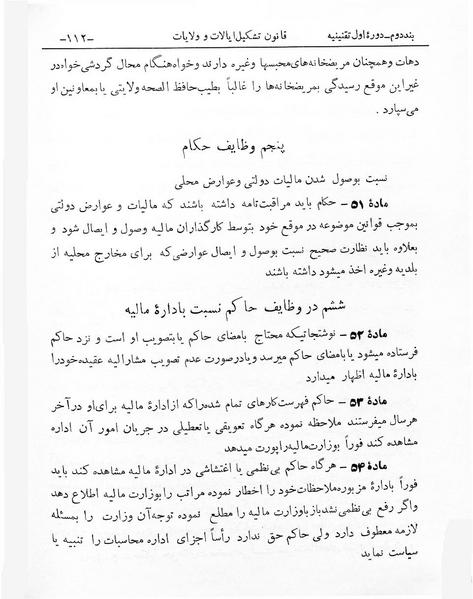 بنددوم-دورهٔ اول تقنینیه قانون تشکیل ایالات و ولایات -۱۱۲-
دهات وهمچنان مریضخانه‌های‌محبسها وغیره دارند وخواه‌هنگام محال گردشی‌خواه‌در
غیراین موقع رسیدگی بمریضخانه‌ها را غالباً بطبیب‌حافظ الصحه ولایتی یابمعاونین او
می‌سپارد .
پنجم وظایف حکام
نسبت بوصول شدن مالیات دولتی وعوارض محلی
مادهٔ ۵۱ - حکام باید مراقبت‌تامه داشته باشند که مالیات و عوارض دولتی
بموجب قوانین موضوعه در موقع خود بتوسط کارگذاران مالیه وصول و ایصال شود و
بعلاوه باید نظارت صحیح نسبت بوصول و ایصال عوارضی‌که برای مخارج محلیه از
بلدیه وغیره اخذ میشود داشته باشند
ششم در وظایف حاکم نسبت بادارهٔ مالیه
مادهٔ ۵۲ - نوشتجاتیکه محتاج بامضای حاکم یابتصویب او است و نزد حاکم
فرستاده میشود یابامضای حاکم میرسد ویادرصورت عدم تصویب مشارالیه عقیده‌خودرا
بادارهٔ مالیه اظهار میدارد
مادهٔ ۵۳ - حاکم فهرست‌کارهای تمام شده‌راکه ازادارهٔ مالیه برای‌او درآخر
هرسال میفرستند ملاحظه نموده هرگاه تعویقی یاتعطیلی در جریان امور آن اداره
مشاهده کند فوراً بوزارت‌مالیه‌راپورت میدهد
مادهٔ ۵۴ - هرگاه حاکم بی‌نظمی یا اغتشاشی در ادارهٔ مالیه مشاهده کند باید
فوراً بادارهٔ مزبوره‌ملاحظات‌خود را اخطار نموده مراتب رابوزارت مالیه اطلاع دهد
واگر رفع بی‌نظمی نشدبازباوزارت مالیه را مطلع نموده توجه‌آن وزارت رابمسئله
لازمه معطوف دارد ولی حاکم حق ندارد رأساً اجزای اداره محاسبات را تنبیه یا
سیاست نماید